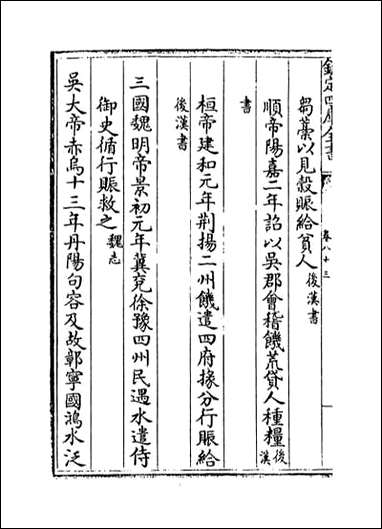 欽定四庫全書
卷八十三
芻藁以見穀賑給貧人後漢書
順帝陽嘉二年詔以吳郡會稽饑荒貸人種糧後漢
書
桓帝建和元年荆揚二州饑遣四府掾分行賑給
後漢書
三國魏明帝景初元年冀兗徐豫四州民遇水遣侍
御史循行賑救之魏志
吳大帝赤烏十三年丹陽句容及故鄣寧國鴻水泛